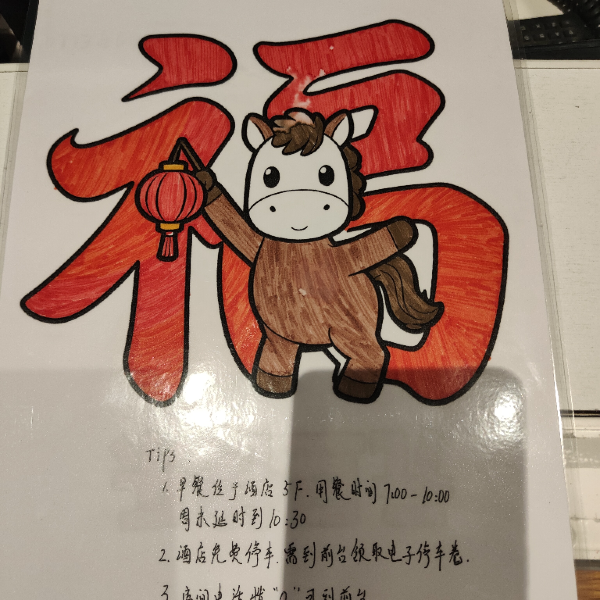 福
Tips
1. 早餐位于酒店5F.用餐时间7:00-10:00
周末延时到10:30
2. 酒店免费停车.需到前台领取电子停车卷.
3. 房间电话拨"0"可到前台